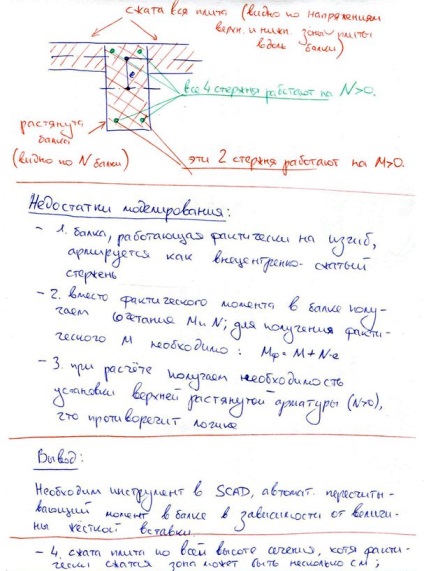 сжата вся плита (видно по напряжениям
верхн. и нижн. зоны плиты
вдоль балки)
e
все 4 стержня работают на N>0.
растянута
балка
(видно по N балки)
эти 2 стержня работают на M>0.
Недостатки моделирования:
- 1. балка, работающая фактически на изгиб,
армируется как внецентренно-сжатый
стержень
- 2. вместо фактического момента в балке полу-
чаем сочетания M и N; для получения факти-
ческого M необходимо: Mф = M + N·e
- 3. при расчёте получаем необходимость
установки верхней растянутой арматуры (N>0),
что противоречит логике
Вывод:
Необходим инструмент в SCAD, автомат. пересчиты-
вающий момент в балке в зависимости от величи-
ны жёсткой вставки.
- 4. сжата плита по всей высоте сечения, хотя факти-
чески сжатая зона может быть несколько см;